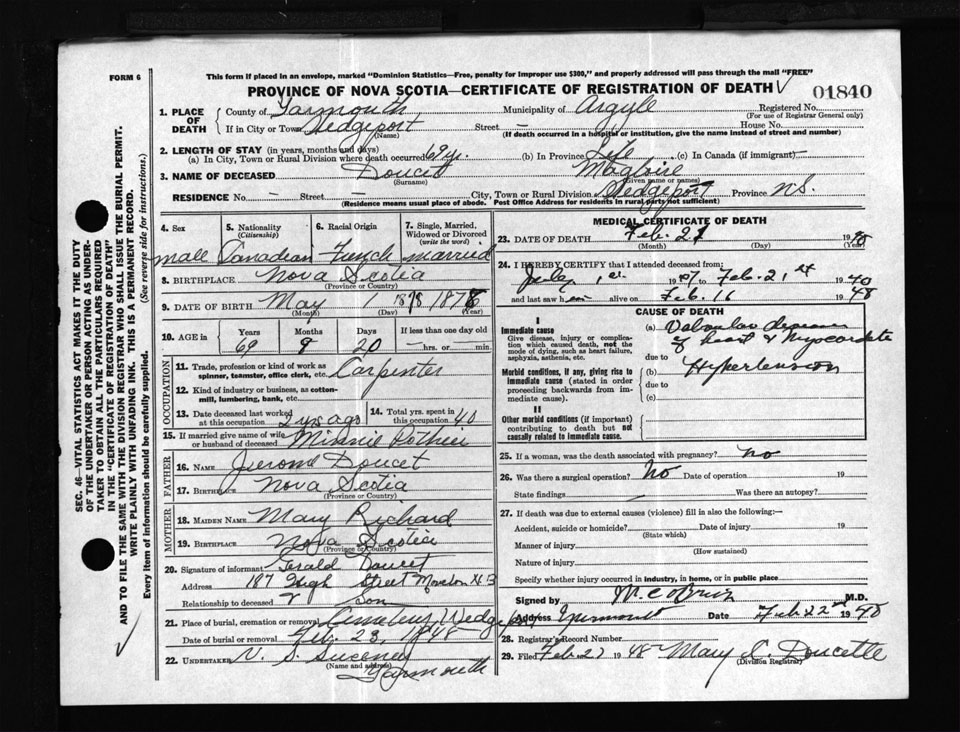 FORM 6
This form if placed in an envelope, marked "Dominion Statistics—Free, penalty for improper use $300," and properly addressed will pass through the mail "FREE"
PROVINCE OF NOVA SCOTIA—CERTIFICATE OF REGISTRATION OF DEATH
01840
1. PLACE OF DEATH
County of Yarmouth Municipality of Argyle Registered No.
(For use of Registrar General only)
If in City or Town Wedgeport Street — House No.
(Name) (If death occurred in a hospital or institution, give the name instead of street and number)
2. LENGTH OF STAY (in years, months and days)
(a) In City, Town or Rural Division where death occurred 69 yr. (b) In Province Life (c) In Canada (if immigrant) —
3. NAME OF DECEASED Doucet Magloire
(Surname) (Given name or names)
RESIDENCE No. — Street — City, Town or Rural Division Wedgeport Province N.S.
(Residence means usual place of abode. Post Office Address for residents in rural parts not sufficient)
4. Sex 5. Nationality (Citizenship) 6. Racial Origin 7. Single, Married, Widowed or Divorced (write the word)
male Canadian French married
8. BIRTHPLACE Nova Scotia
(Province or Country)
9. DATE OF BIRTH May 1 1878
(Month) (Day) (Year)
10. AGE in Years Months Days If less than one day old
69 9 20 —hrs. or — min.
OCCUPATION
11. Trade, profession or kind of work as spinner, teamster, office clerk, etc. Carpenter
12. Kind of industry or business, as cotton-mill, lumbering, bank, etc.
13. Date deceased last worked at this occupation 2 yrs ago 14. Total yrs. spent in this occupation 40
15. If married give name of wife or husband of deceased Minnie
FATHER
16. NAME Jerome Doucet
17. Birthplace Nova Scotia
(Province or Country)
MOTHER
18. MAIDEN NAME Mary Richard
19. BIRTHPLACE Nova Scotia
(Province or Country)
20. Signature of informant Gerald Doucet
Address 187 High Street Moncton N.B
Relationship to deceased Son
21. Place of burial, cremation or removal Cemetery Wedgeport
Date of burial or removal Feb. 23, 1948
22. UNDERTAKER V. S. Sweeney
(Name and address) Yarmouth
MEDICAL CERTIFICATE OF DEATH
23. DATE OF DEATH Feb. 21 19
(Month) (Day) (Year)
24. I HEREBY CERTIFY that I attended deceased from:
July 1 19 to Feb. 21st 19
and last saw him alive on Feb. 16 1948
CAUSE OF DEATH
I
Immediate cause
Give disease, injury or complication which caused death, not the mode of dying, such as heart failure, asphyxia, asthenia, etc.
(a) Valvular disease of heart &
due to
Morbid conditions, if any, giving rise to immediate cause (stated in order proceeding backwards from immediate cause).
(b) Hypertension
due to
(c)
II
Other morbid conditions (if important) contributing to death but not causally related to immediate cause.
25. If a woman, was the death associated with pregnancy? no
26. Was there a surgical operation? no Date of operation 19
State findings — Was there an autopsy?
27. If death was due to external causes (violence) fill in also the following:—
Accident, suicide or homicide? Date of injury 19
(State which)
Manner of injury
(How sustained)
Nature of injury
Specify whether injury occurred in industry, in home, or in public place
Signed by M.D.
Address Date Feb 22nd 1948
28. Registrar's Record Number
29. Filed 1948 Mary Doucette
(Division Registrar)
SEC. 46—VITAL STATISTICS ACT MAKES IT THE DUTY
OF THE UNDERTAKER OR PERSON ACTING AS UNDERTAKER
TO OBTAIN ALL THE PARTICULARS REQUIRED
IN THE "CERTIFICATE OF REGISTRATION OF DEATH"
AND TO FILE THE SAME WITH THE DIVISION REGISTRAR WHO SHALL ISSUE THE BURIAL PERMIT.
WRITE PLAINLY WITH UNFADING INK. THIS IS A PERMANENT RECORD.
Every item of information should be carefully supplied. (See reverse side for instructions.)